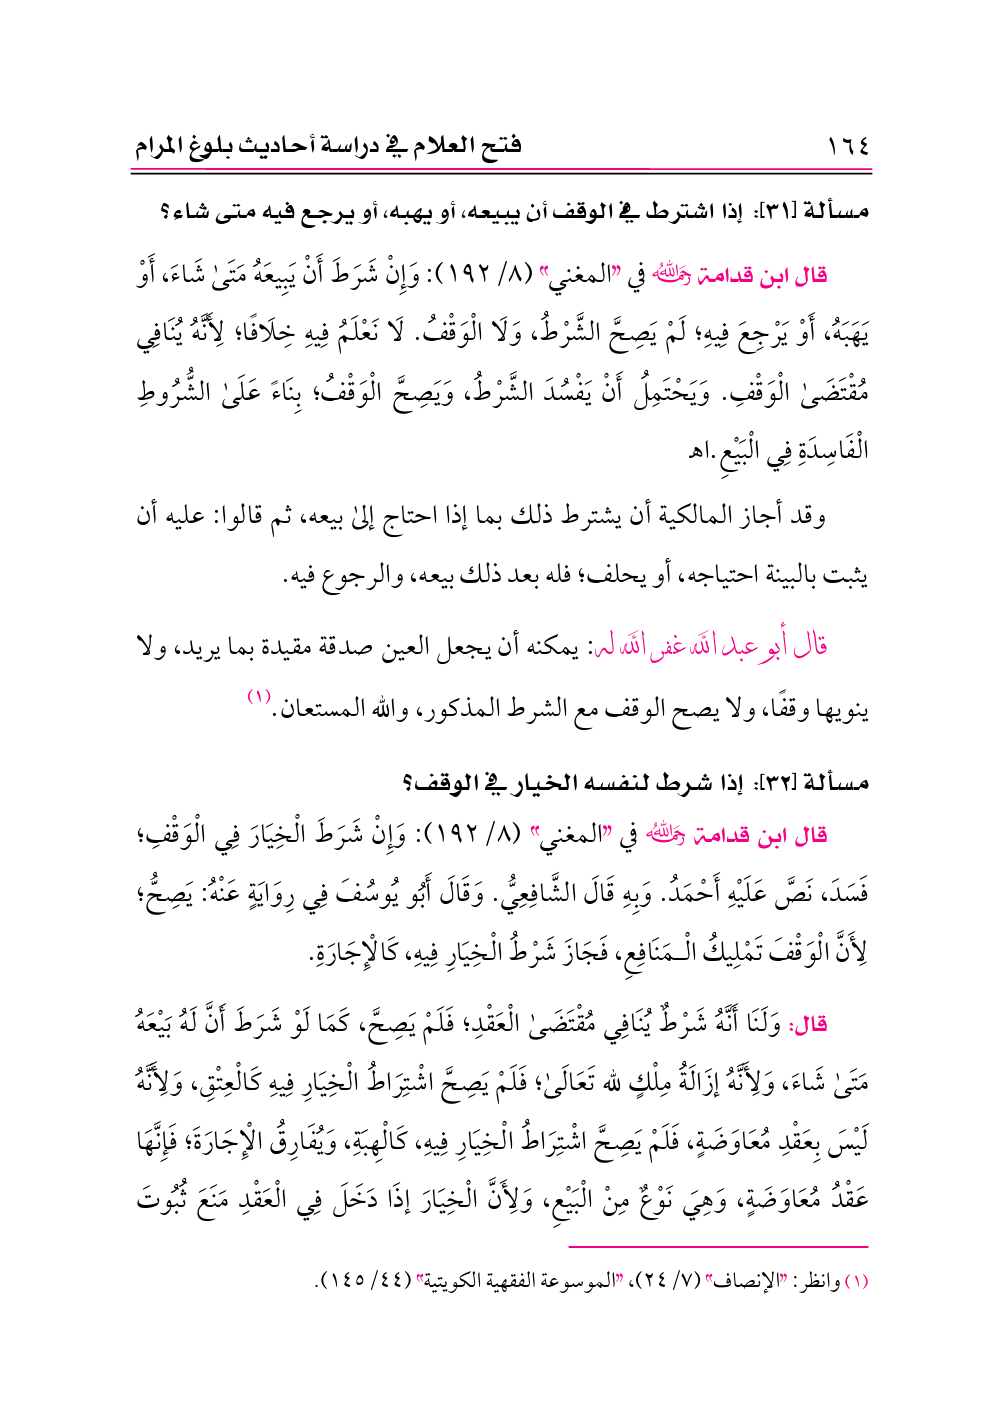 ١٦٤ فتح العلام في دراسة أحاديث بلوغ المرام
مسألة [٣١]: إذا اشترط في الوقف أن يبيعه، أو يهبه، أو يرجع فيه متى شاء؟
قال ابن قدامة رَحِمَهُ اللهُ في "المغني" (٨/ ١٩٢): وَإِنْ شَرَطَ أَنْ يَبِيعَهُ مَتَىٰ شَاءَ، أَوْ
يَهَبَهُ، أَوْ يَرْجِعَ فِيهِ؛ لَمْ يَصِحَّ الشَّرْطُ، وَلَا الْوَقْفُ. لَا نَعْلَمُ فِيهِ خِلَافًا؛ لِأَنَّهُ يُنَافِي
مُقْتَضَىٰ الْوَقْفِ. وَيَحْتَمِلُ أَنْ يَفْسُدَ الشَّرْطُ، وَيَصِحَّ الْوَقْفُ؛ بِنَاءً عَلَىٰ الشُّرُوطِ
الْفَاسِدَةِ فِي الْبَيْعِ.اهـ
وقد أجاز المالكية أن يشترط ذلك بما إذا احتاج إلىٰ بيعه، ثم قالوا: عليه أن
يثبت بالبينة احتياجه، أو يحلف؛ فله بعد ذلك بيعه، والرجوع فيه.
قال أبو عبد الله غفر الله له: يمكنه أن يجعل العين صدقة مقيدة بما يريد، ولا
ينويها وقفًا، ولا يصح الوقف مع الشرط المذكور، والله المستعان.(١)
مسألة [٣٢]: إذا شرط لنفسه الخيار في الوقف؟
قال ابن قدامة رَحِمَهُ اللهُ في "المغني" (٨/ ١٩٢): وَإِنْ شَرَطَ الْخِيَارَ فِي الْوَقْفِ؛
فَسَدَ، نَصَّ عَلَيْهِ أَحْمَدُ. وَبِهِ قَالَ الشَّافِعِيُّ. وَقَالَ أَبُو يُوسُفَ فِي رِوَايَةٍ عَنْهُ: يَصِحُّ؛
لِأَنَّ الْوَقْفَ تَمْلِيكُ الْـمَنَافِعِ، فَجَازَ شَرْطُ الْخِيَارِ فِيهِ، كَالْإِجَارَةِ.
قال: وَلَنَا أَنَّهُ شَرْطٌ يُنَافِي مُقْتَضَىٰ الْعَقْدِ؛ فَلَمْ يَصِحَّ، كَمَا لَوْ شَرَطَ أَنَّ لَهُ بَيْعَهُ
مَتَىٰ شَاءَ، وَلِأَنَّهُ إزَالَةُ مِلْكٍ لله تَعَالَىٰ؛ فَلَمْ يَصِحَّ اشْتِرَاطُ الْخِيَارِ فِيهِ كَالْعِتْقِ، وَلِأَنَّهُ
لَيْسَ بِعَقْدِ مُعَاوَضَةٍ، فَلَمْ يَصِحَّ اشْتِرَاطُ الْخِيَارِ فِيهِ، كَالْهِبَةِ، وَيُفَارِقُ الْإِجَارَةَ؛ فَإِنَّهَا
عَقْدُ مُعَاوَضَةٍ، وَهِيَ نَوْعٌ مِنْ الْبَيْعِ، وَلِأَنَّ الْخِيَارَ إذَا دَخَلَ فِي الْعَقْدِ مَنَعَ ثُبُوتَ
(١) وانظر: "الإنصاف" (٧/ ٢٤)، "الموسوعة الفقهية الكويتية" (٤٤/ ١٤٥).